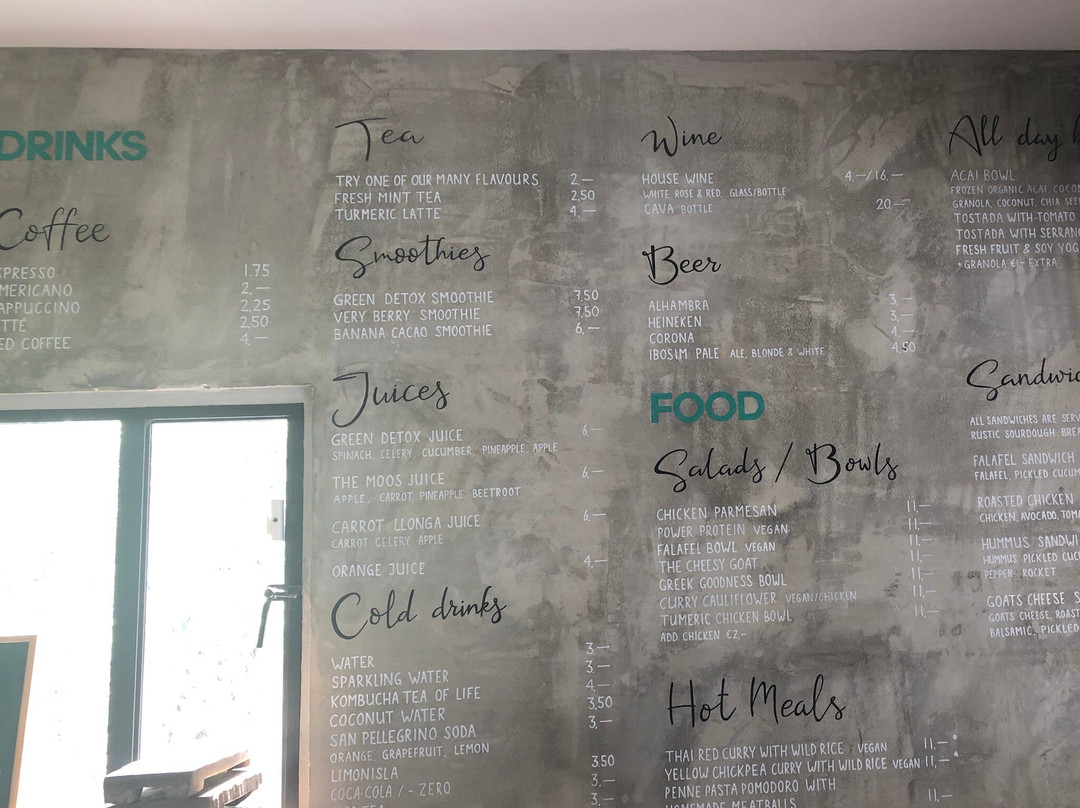 DRINKS
Coffee
SPRESSO 1.75
MERICANO 2,—
APPUCCINO 2,25
TTÉ 2,50
ED COFFEE 4,—
Tea
TRY ONE OF OUR MANY FLAVOURS 2,—
FRESH MINT TEA 2,50
TURMERIC LATTE 4,—
Smoothies
GREEN DETOX SMOOTHIE 7,50
VERY BERRY SMOOTHIE 7,50
BANANA CACAO SMOOTHIE 6,—
Juices
GREEN DETOX JUICE 6,—
SPINACH, CELERY, CUCUMBER, PINEAPPLE, APPLE
THE MOOS JUICE 6,—
APPLE, CARROT, PINEAPPLE, BEETROOT
CARROT LLONGA JUICE 6,—
CARROT, CELERY, APPLE
ORANGE JUICE 4,—
Cold drinks
WATER 3,—
SPARKLING WATER 3,—
KOMBUCHA TEA OF LIFE 4,—
COCONUT WATER 3,50
SAN PELLEGRINO SODA 3,—
ORANGE, GRAPEFRUIT, LEMON
LIMONISLA 3.50
COCA-COLA / - ZERO 3,—
3,—
Wine
HOUSE WINE 4,—/16,—
WHITE, ROSE & RED, GLASS/BOTTLE
CAVA BOTTLE 20,—
Beer
ALHAMBRA 3,—
HEINEKEN 3,—
CORONA 4,—
IBOSIM PALE ALE, BLONDE & WHITE 4,50
FOOD
Salads / Bowls
CHICKEN PARMESAN 11,—
POWER PROTEIN VEGAN 11,—
FALAFEL BOWL VEGAN 11,—
THE CHEESY GOAT 11,—
GREEK GOODNESS BOWL 11,—
CURRY CAULIFLOWER VEGAN/CHICKEN 11,—
TUMERIC CHICKEN BOWL 11,—
ADD CHICKEN €2,—
Hot Meals
THAI RED CURRY WITH WILD RICE VEGAN 11,—
YELLOW CHICKPEA CURRY WITH WILD RICE VEGAN 11,—
PENNE PASTA POMODORO WITH
HOMEMADE MEATBALLS 11,—
All day
ACAI BOWL
FROZEN ORGANIC ACAI, COCON
GRANOLA, COCONUT, CHIA SEE
TOSTADA WITH TOMATO
TOSTADA WITH SERRANO
FRESH FRUIT & SOY YOG
+ GRANOLA €1,— EXTRA
Sandwic
ALL SANDWICHES ARE SERV
RUSTIC SOURDOUGH BREA
FALAFEL SANDWICH
FALAFEL, PICKLED CUCUM
ROASTED CHICKEN
CHICKEN, AVOCADO, TOMA
HUMMUS SANDWI
HUMMUS, PICKLED CUC
PEPPER, ROCKET
GOATS CHEESE S
GOATS CHEESE, ROAST
BALSAMIC, PICKLED